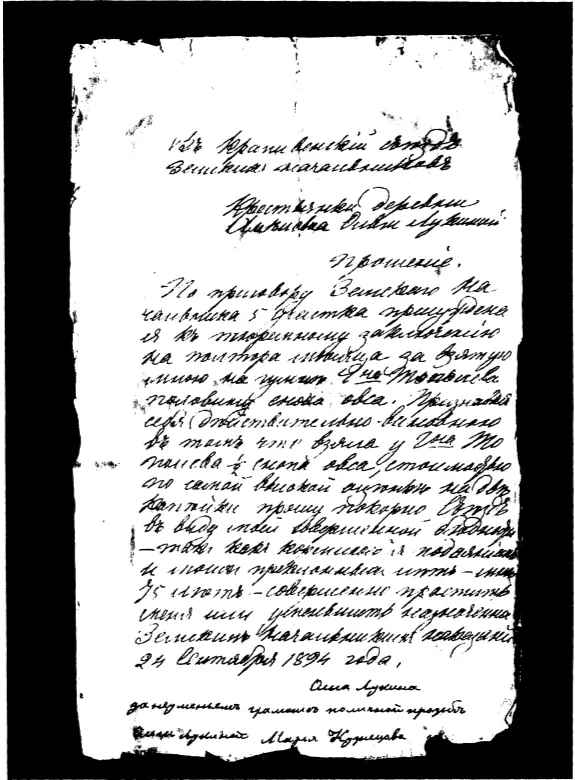 Въ Крапивенскій съѣздъ
Земскихъ начальниковъ
Крестьянки деревни
Олги Лукиной
Прошеніе.
По приговору Земскаго На
чальника 5 участка присуждена
я къ тюремному заключенію
на полтора мѣсяца за взятую
мною на гумнѣ Гна
половину снопа овса. Признавая
себя дѣйствительно виновною
въ томъ что взяла у Гна То
½ снопа овса, стоимостью
по самой высокой оцѣнкѣ на двѣ
капѣйки прошу покорно Съѣздъ
въ виду моей совершенной бѣдности
– такъ какъ кормлюсь я подаяніемъ
и моихъ преклонныхъ лѣтъ – мнѣ
75 лѣтъ – совершенно простить
меня или уменьшить назначенна
Земскимъ Начальникомъ наказаніе
24 Сентября 1894 года.
Олга Лукина
за неуменьемъ грамоте по личной прозбѣ
Олги Лукиной Марья Кузнецова